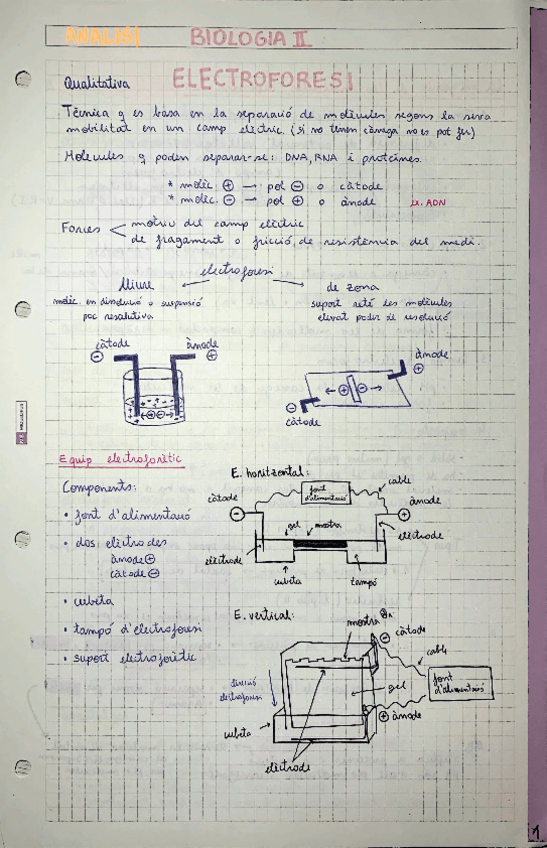 ANÀLISI BIOLOGIA II
ELECTROFORESI
Qualitativa
Tècnica q es basa en la separació de molècules segons la seva
mobilitat en un camp elèctric. (si no tenen càrrega no es pot fer)
Molècules q poden separar-se: DNA, RNA i proteïnes.
* molèc ⊕ → pol ⊖ o càtode
* molèc. ⊖ → pol ⊕ o ànode
ADN
Forces < motriu del camp elèctric
de fragament o fricció de resistència del medi.
electroforesi
lliure
de zona
molèc. en dissolució o suspensió
poc resolutiva
suport reté les molècules
elevat poder de resolució
càtode ⊖
ànode ⊕
ànode ⊕
⊖ càtode
Equip electroforètic
Components:
• font d'alimentació
• dos elèctrodes
ànode ⊕
càtode ⊖
• cubeta
• tampó d'electroforesi
• suport electroforètic
E. horitzontal:
font d'alimentació
cable
càtode ⊖
ànode ⊕
gel
mostra
elèctrode
elèctrode
cubeta
tampó
E. vertical:
mostra
⊖ càtode
cable
font d'alimentació
gel
⊕ ànode
direcció
electroforesi
cubeta
elèctrode
1